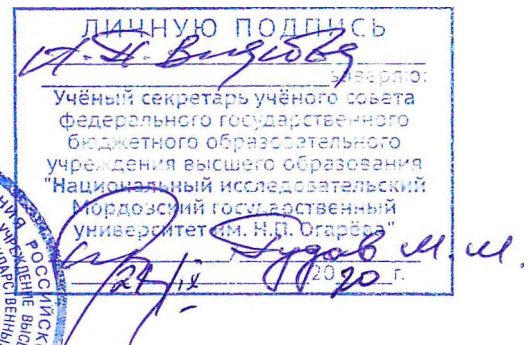 ЛИЧНУЮ ПОДПИСЬ
заверяю:
Учёный секретарь учёного совета
федерального государственного
бюджетного образовательного
учреждения высшего образования
"Национальный исследовательский
Мордовский государственный
университет им. Н.П. Огарёва"
Гудов М.М.
2020 г.
НИЯ РОССИЙСК
УЧРЕЖДЕНИЕ ВЫС